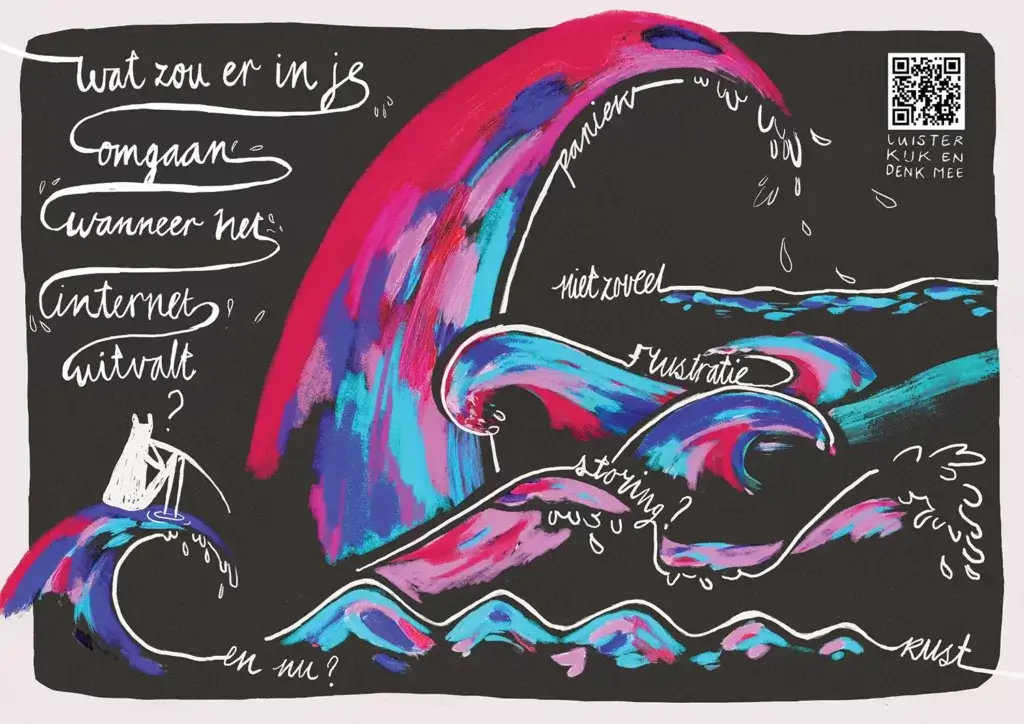 wat zou er in je
omgaan
wanneer het
internet
uitvalt
?
paniek
LUISTER
KIJK EN
DENK MEE
niet zoveel
frustratie
storing?
en nu?
rust